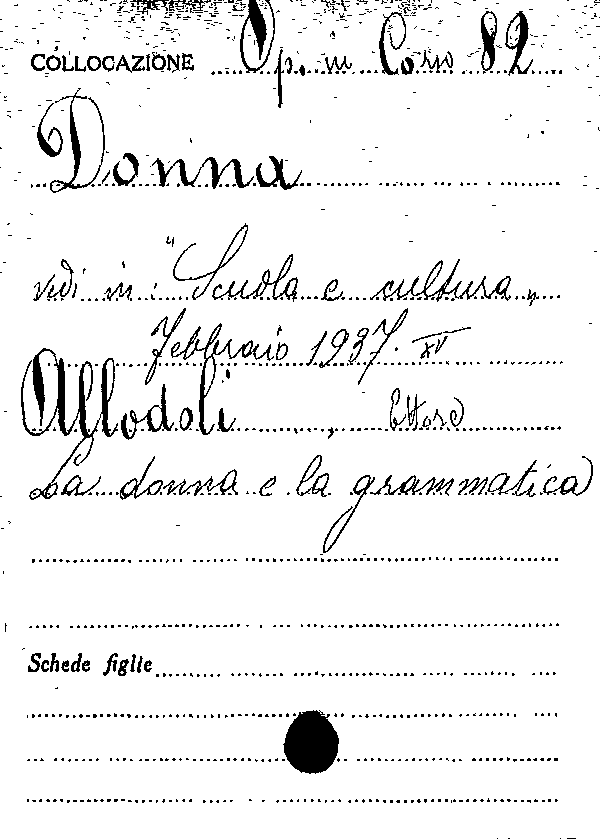 COLLOCAZIONE Op. in Corso 82
Donna
vedi in: "Scuola e cultura„
Febbraio 1937. XV
Allodoli , Ettore
La donna e la grammatica
Schede figlie